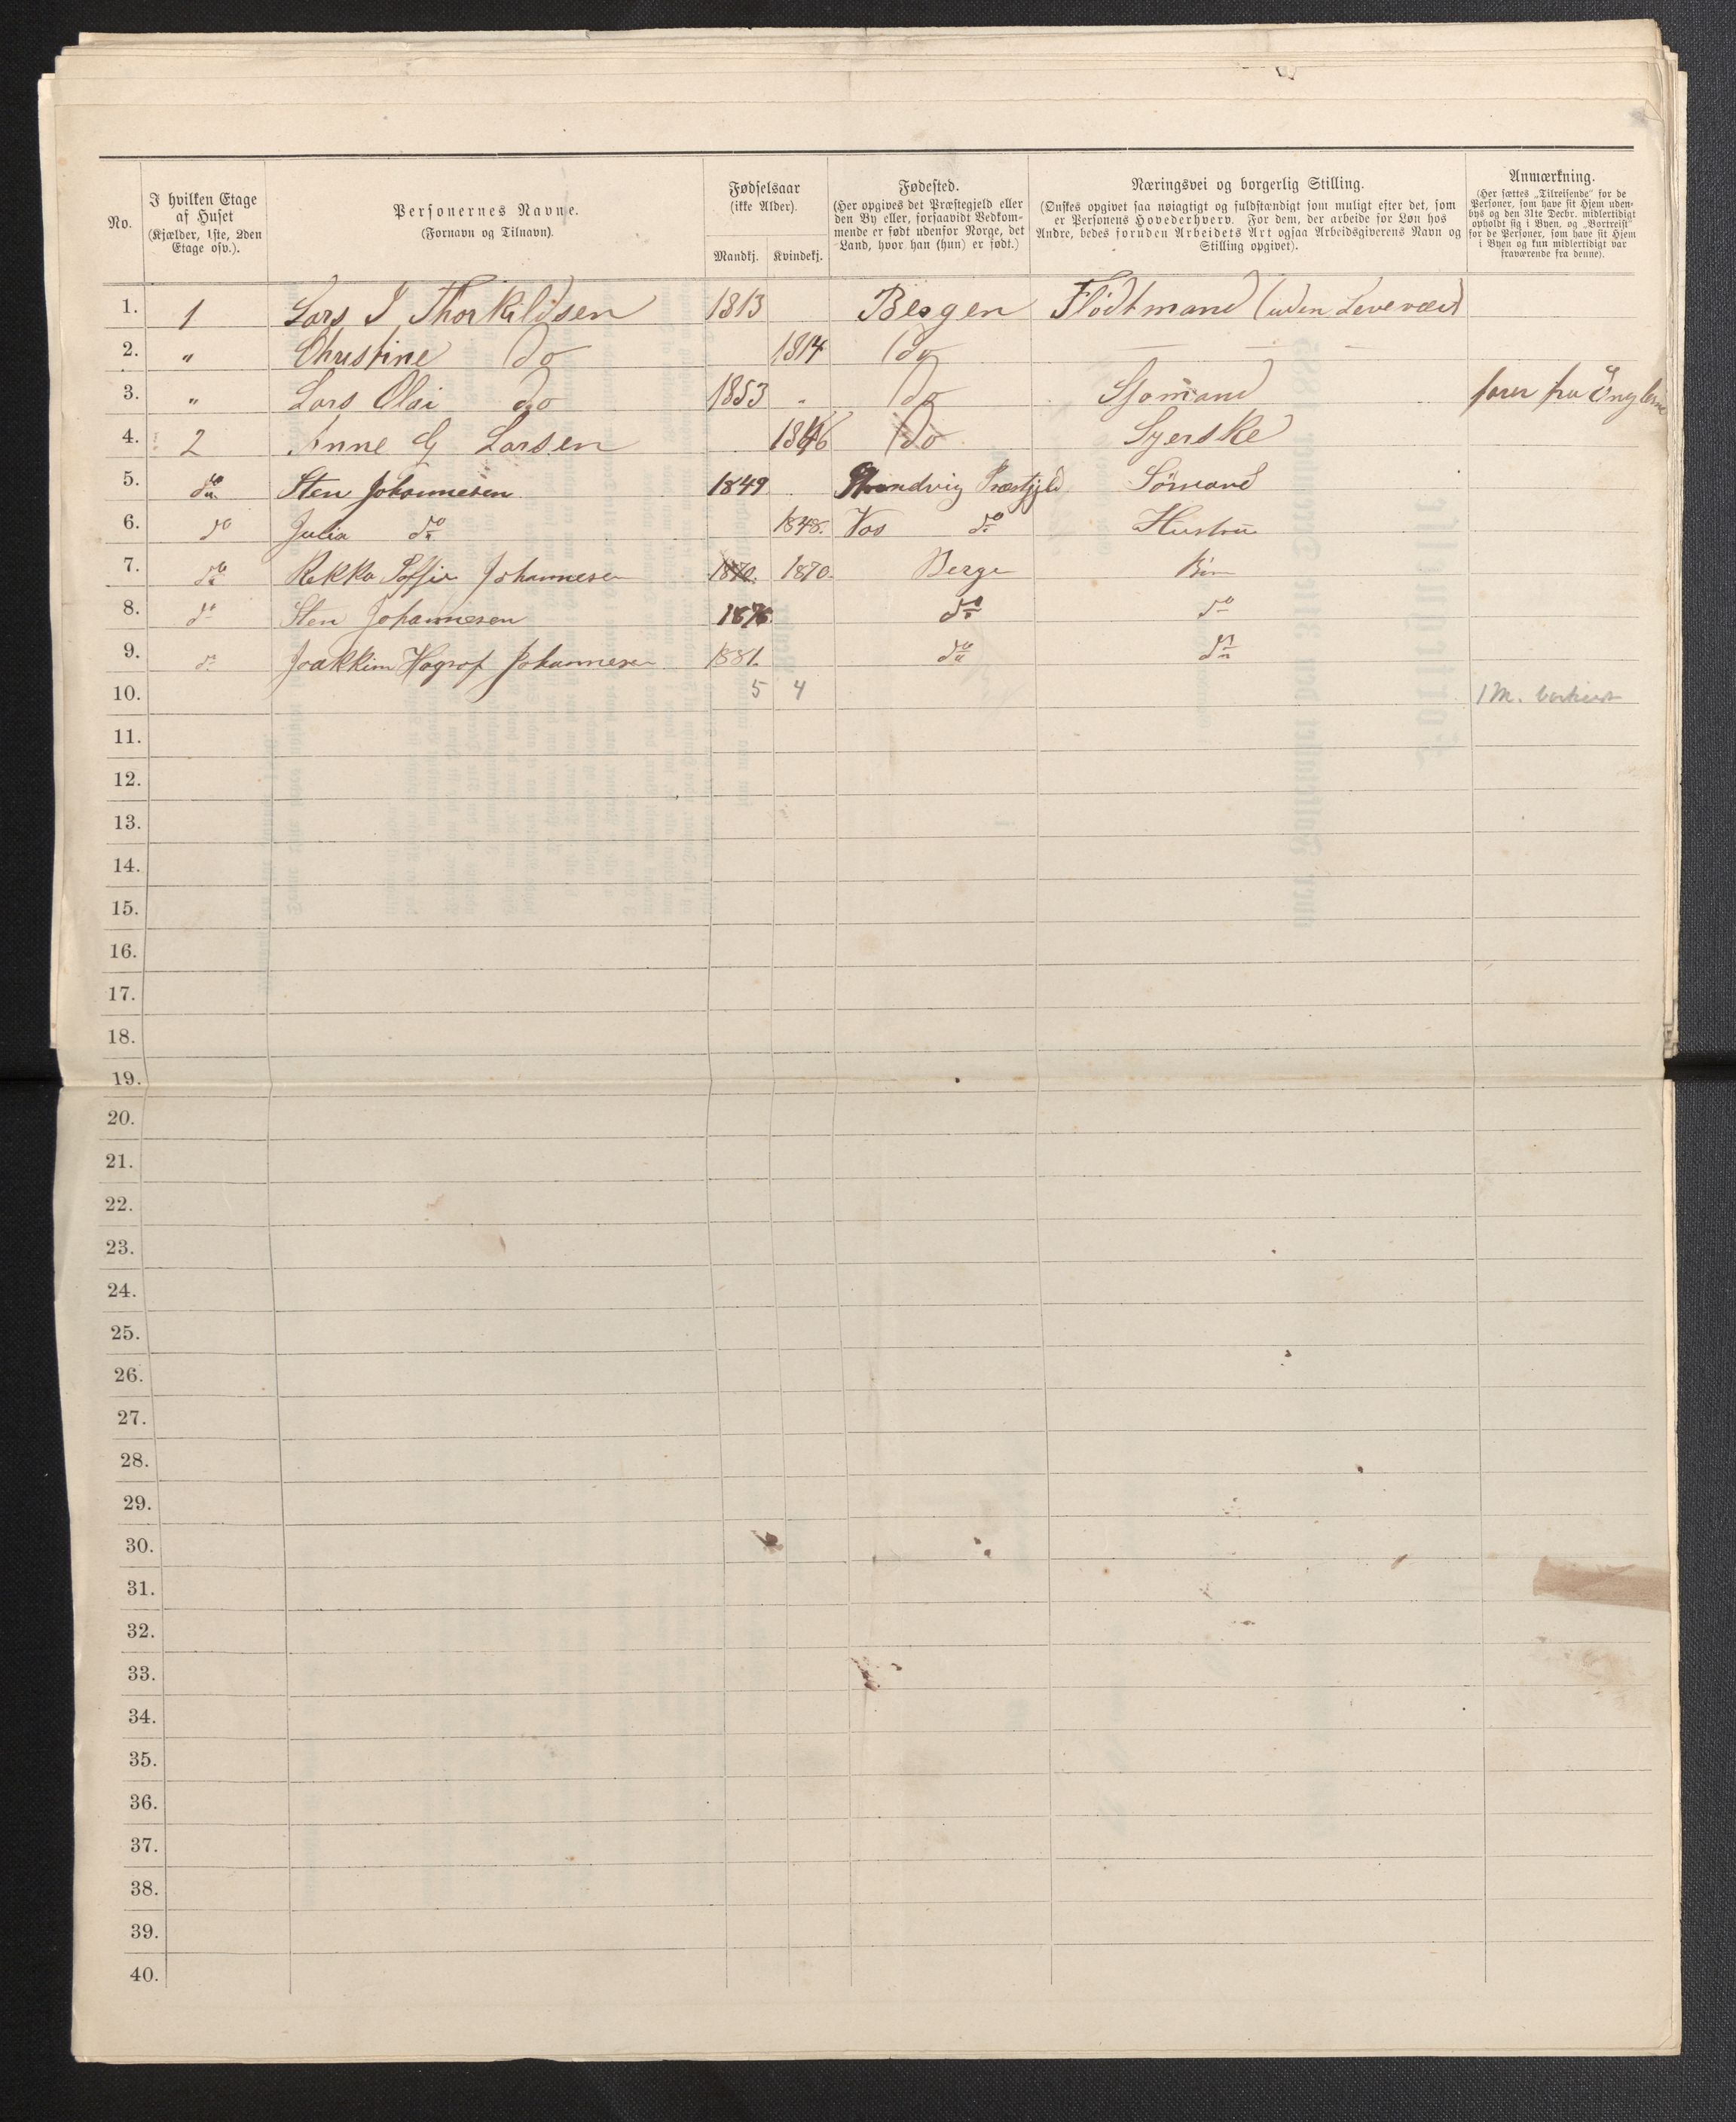 No.
I hvilken Etage af Huset (Kjælder, 1ste, 2den Etage osv.).
Personernes Navne. (Fornavn og Tilnavn).
Fødselsaar (ikke Alder).
Mandkj. Kvindekj.
Fødested. (Her opgives det Præstegjeld eller den By eller, forsaavidt Vedkommende er født udenfor Norge, det Land, hvor han (hun) er født.)
Næringsvei og borgerlig Stilling. (Ønskes opgivet saa nøiagtigt og fuldstændigt som muligt efter det, som er Personens Hovederhverv. For dem, der arbeide for Løn hos Andre, bedes foruden Arbeidets Art ogsaa Arbeidsgiverens Navn og Stilling opgivet).
Anmærkning. (Her sættes „Tilreisende" for de Personer, som have sit Hjem udenbys og den 31te Decbr. midlertidigt opholdt sig i Byen, og „Bortreist" for de Personer, som have sit Hjem i Byen og kun midlertidigt var fraværende fra denne).
1. 1 Lars J Thorkildsen 1813 Bergen Flödtmand (uden Levevæi)
2. " Christine Do 1814 Do — — —
3. " Lars Olai do 1853 - Do Sjömand farer fra
4. 2 Anne G Larsen 1846 Do Syerske
5. do Sten Johannesen 1849 Strandvig Præstgjld Sömand
6. do Julia do 1848. Vos do Hustru
7. do Rekka Johannesen 1870. 1870. Berge
8. do Sten Johannesen 1876. do do
9. do Joakkim Johannesen 1881. do do
10. 5 4 1 M.
11.
12.
13.
14.
15.
16.
17.
18.
19.
20.
21.
22.
23.
24.
25.
26.
27.
28.
29.
30.
31.
32.
33.
34.
35.
36.
37.
38.
39.
40.